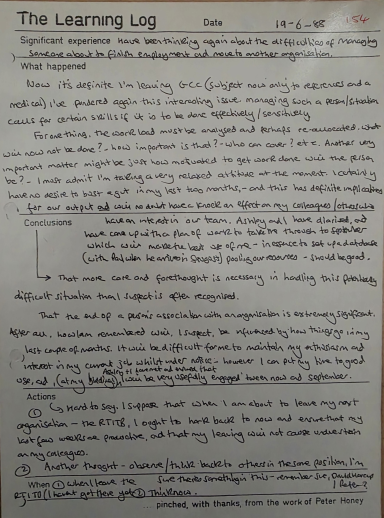 The Learning Log Date 19-6-88 154
Significant experience Have been thinking again about the difficulties of managing
someone about to finish employment and move to another organisation.
What happened
Now it's definite I'm leaving GCC (subject now only to references and a
medical) I've pondered again this interesting issue. Managing such a person/situation
calls for certain skills if it is to be done effectively/sensitively.
For one thing, the work load must be analysed and perhaps re-allocated. What
will now not be done? - how important is that? - who can cover? etc. Another very
important matter might be just how motivated to get work done will the person
be? - I must admit I'm taking a very relaxed attitude at the moment. I certainly
have no desire to bust a gut in my last two months, - and this has definite implications
for our output and will no doubt have a knock on effect on my colleagues (otherwise
Conclusions have an interest in our team. Ashley and I have diarised, and
have come up with a plan of work to take me through to September
which will make the best use of me - in essence to set up a database
(with Paul when he arrives in August) pooling our resources - should be good.
That more care and forethought is necessary in handling this potentially
difficult situation than I suspect is often recognised.
That the end of a person's association with an organisation is extremely significant.
After all, how I am remembered will, I suspect, be influenced by how things go in my
last couple of months. It will be difficult for me to maintain my enthusiasm and
interest in my current job whilst under notice - however I can put my time to good
use, and, (at my
will be very usefully engaged 'tween now and September.
Actions
① Hard to say. I suppose that when I am about to leave my next
organisation - the RTITB, I ought to hark back to now and ensure that my
last few weeks are proactive, and that my leaving will not cause undue strain
on my colleagues.
② Another thought - observe/think back to others in the same position, I'm
When ① when I leave the sure there's something in this - remember Sue, David
RTITB (I haven't got there yet) ② Think now. Peter?
... pinched, with thanks, from the work of Peter Honey